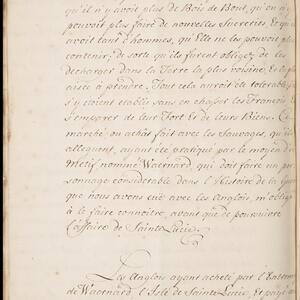 qu'il n'y avoit plus de Bois de Bout, qu'on n'y
pouvoit plus faire de nouvelles Sucreries, et qu'il y
avoit tant d'hommes, qu'Elle ne les pouvoit plus
contenir; de sorte qu'ils furent obligez de les
decharger dans la Terre la plus voisine et la plus
aisée à prendre. Tout cela auroit été tolerable s'ils
s'y étoient etablis sans en chasser les François et
s'emparer de leur Fort et de leurs Biens. Ce
marché ou achât fait avec les Sauvages, qu'ils
alleguent, ayant été pratiqué par le moyen d'un
Metif nommé Waernard, qui doit faire un per-
sonnage considerable dans l'Histoire de la Guerre
que nous avons eüe avec les Anglois, m'oblige
à le faire connoître, avant que de poursuivre
l'affaire de Sainte Lucie.
Les Anglois ayant acheté par l'Entremise
de Waernard l'Isle de Sainte Lucie, et payé